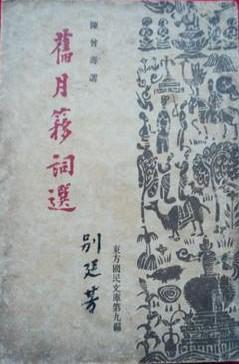 陳曾壽著
舊月簃詞選
別廷芳
東方國民文庫第九編